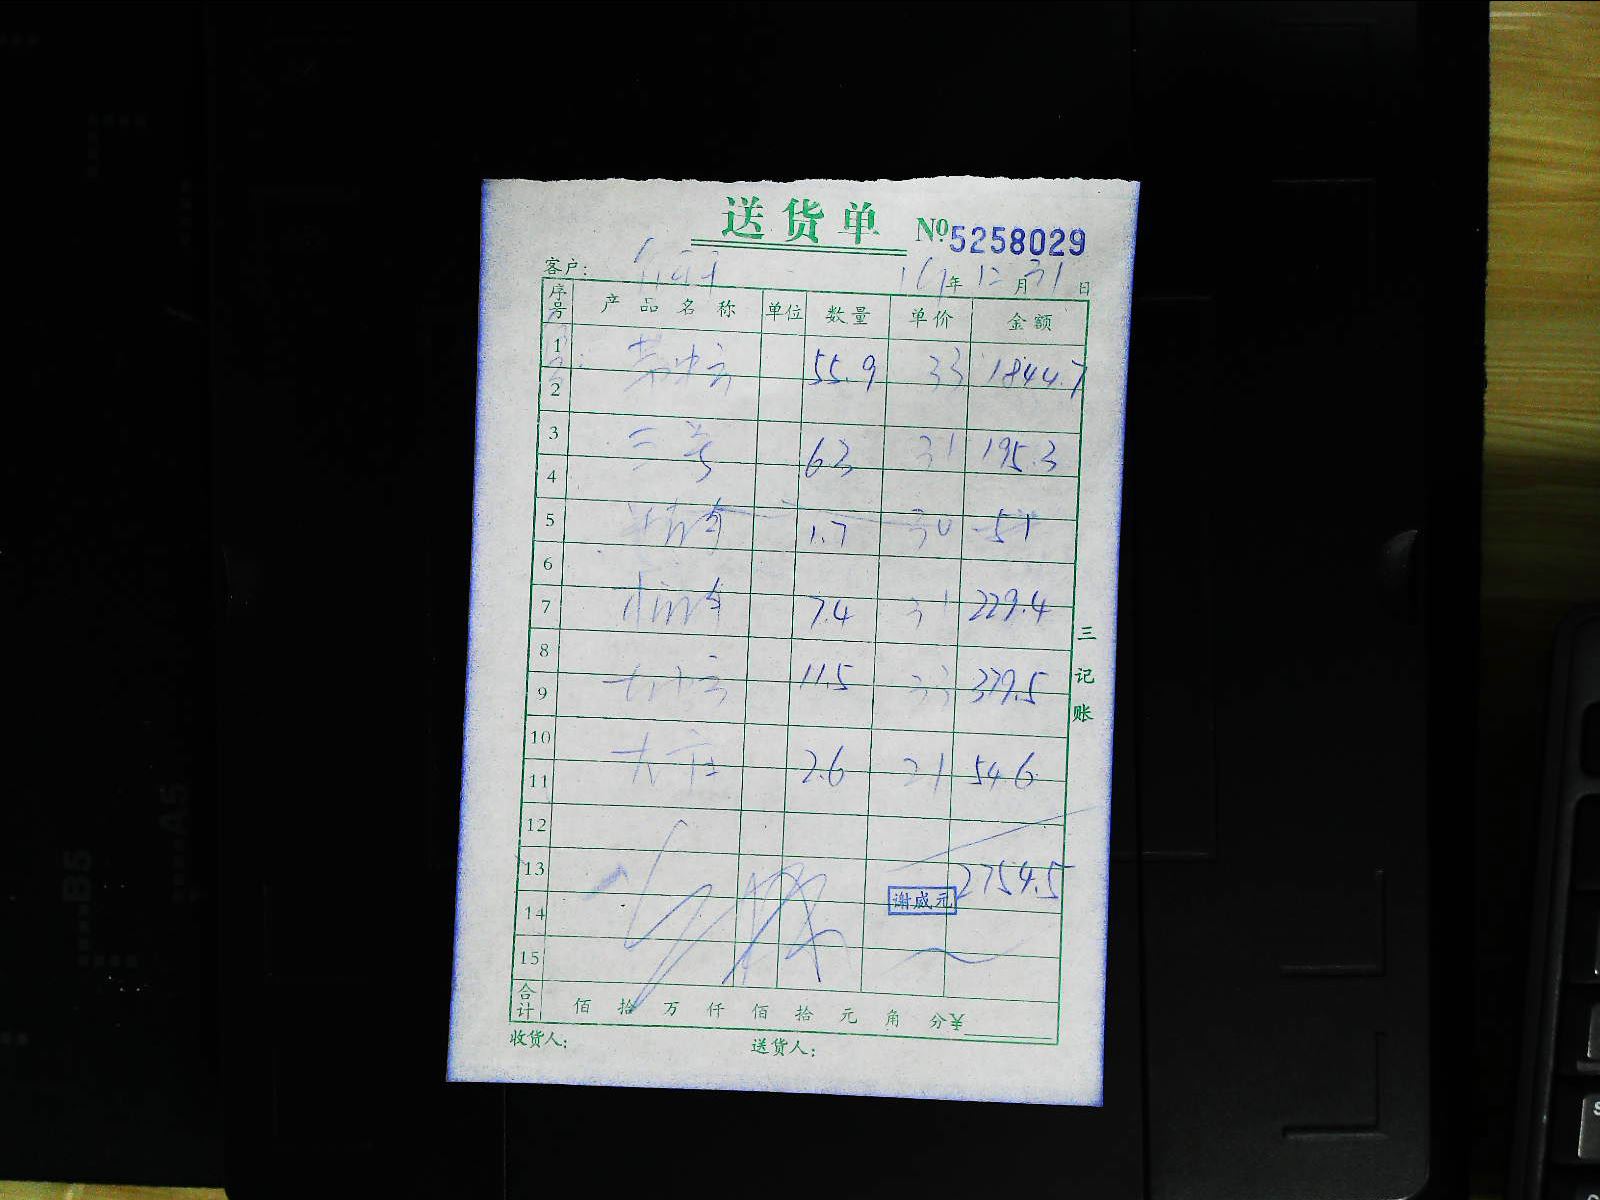 送货单 №5258029
客户: 年 12 月 31 日
序号 产品名称 单位 数量 单价 金额
1 55.9 33 1844.7
2
3 三号 6.3 31 195.3
4
5 1.7 30 51
6
7 7.4 31 229.4
8
9 11.5 33 379.5
10
11 大 2.6 21 54.6
12
13 2754.5
谢咸元
14
15
合计 佰 拾 万 仟 佰 拾 元 角 分¥
收货人: 送货人:
三 记账
B5
A5